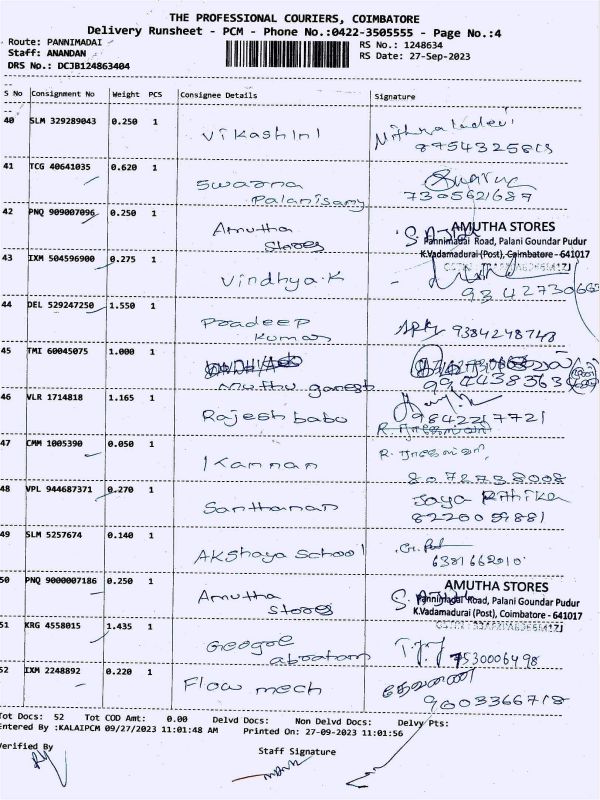 THE PROFESSIONAL COURIERS, COIMBATORE
Delivery Runsheet - PCM - Phone No.:0422-3505555 - Page No.:4
Route: PANNIMADAI
RS No.: 1248634
Staff: ANANDAN
RS Date: 27-Sep-2023
DRS No.: DCJB124863404
S No Consignment No Weight PCS Consignee Details Signature
40 SLM 329289043 0.250 1 Vikashini
8754325813
41 TCG 40641035 0.620 1 Swarna
Palanisamy
7305621689
42 PNQ 909007096 0.250 1 Amutha
Stores
AMUTHA STORES
Pannimadai Road, Palani Goundar Pudur
K.Vadamadurai (Post), Coimbatore - 641017
43 IXM 504596900 0.275 1 Vindhya.K
44 DEL 529247250 1.550 1 Pradeep
Kumar
9384248748
45 TMI 60045075 1.000 1
Muthu ganesh
9944383630
46 VLR 1714818 1.165 1 Rajesh babu
9842217721
47 CMM 1005390 0.050 1 I Kannan
8072738008
48 VPL 944687371 0.270 1 Santhanan Jaya Rithika
8220059881
49 SLM 5257674 0.140 1 AKshaya School
50 PNQ 9000007186 0.250 1 Amutha
Stores
AMUTHA STORES
Pannimadai Road, Palani Goundar Pudur
K.Vadamadurai (Post), Coimbatore - 641017
51 KRG 4558015 1.435 1 Geogol
abraham
7530006498
52 IXM 2248892 0.220 1 Flow mech
9003366718
Tot Docs: 52 Tot COD Amt: 0.00 Delvd Docs: Non Delvd Docs: Delvy Pts:
Entered By :KALAIPCM 09/27/2023 11:01:48 AM Printed On: 27-09-2023 11:01:56
Verified By
Staff Signature